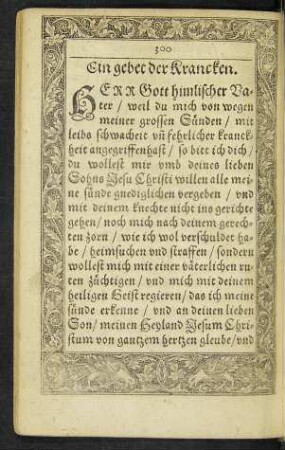 300
Ein gebet der Krancken.
HERR Gott himlischer Va-
ter / weil du mich von wegen
meiner grossen Sünden / mit
leibs schwacheit vñ fehrlicher kranck-
heit angegriffenhast / so bitt ich dich /
du wollest mir vmb deines lieben
Sohns Jesu Christi willen alle mei-
ne sünde gnediglichen vergeben / vnd
mit deinem knechte nicht ins gerichte
gehen / noch mich nach deinem gerech-
ten zorn / wie ich wol verschuldet ha-
be / heimsuchen vnd straffen / sondern
wollest mich mit einer väterlichen ru-
ten züchtigen / vnd mich mit deinem
heiligen Geist regieren / das ich meine
sünde erkenne / vnd an deinen lieben
Son / meinen Heyland Jesum Chri-
stum von gantzem hertzen gleube / vnd